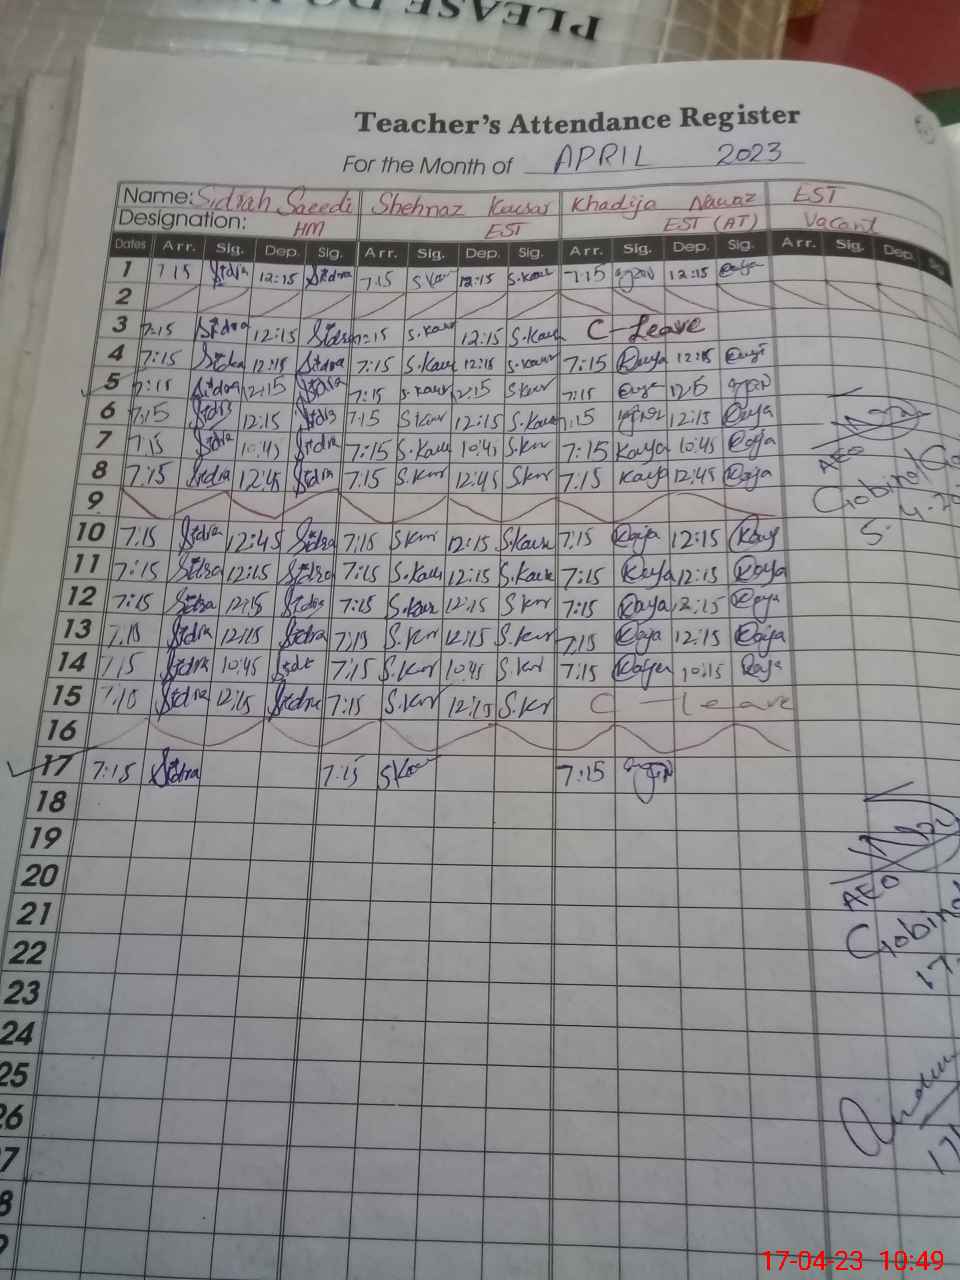 PLEASE DO
Teacher's Attendance Register
For the Month of APRIL 2023
Name: Sidrah Saeedi Shehnaz Kausar Khadija Nawaz EST
Designation: HM EST EST (AT) Vacant
Dates Arr. Sig. Dep. Sig. Arr. Sig. Dep. Sig. Arr. Sig. Dep. Sig. Arr. Sig. Dep. Sig
1 7:15 Sidra 12:15 Sidra 7:15 S.Kaur 12:15 S.Kaur 7:15 12:15
2
3 7:15 Sidra 12:15 Sidra 7:15 S.Kaur 12:15 S.Kaur C-Leave
4 7:15 Sidra 12:15 Sidra 7:15 S.Kaur 12:15 S.Kaur 7:15 12:15
5 7:15 Sidra 12:15 Sidra 7:15 S.Kaur 12:15 S.Kaur 7:15
6 7:15 Sidra 12:15 Sidra 7:15 S.Kaur 12:15 S.Kaur 7:15 12:15
7 7:15 Sidra 10:45 Sidra 7:15 S.Kaur 10:45 S.Kr 7:15 10:45
8 7:15 Sidra 12:45 Sidra 7:15 S.Kr 12:45 S.Kr 7:15 12:45
AEO
Gobind
9
10 7:15 Sidra 12:45 Sidra 7:15 S.Kr 12:15 S.Kaur 7:15 12:15
11 7:15 Sidra 12:15 Sidra 7:15 S.Kaur 12:15 S.Kaur 7:15 12:15
12 7:15 Sidra 12:15 Sidra 7:15 S.Kaur 12:15 S.Kr 7:15 12:15
13 7:15 Sidra 12:15 Sidra 7:15 S.Kr 12:15 S.Kr 7:15 12:15
14 7:15 Sidra 10:45 7:15 S.Kr 10:45 S.Kr 7:15 10:15
15 7:10 Sidra 12:15 Sidra 7:15 S.Kr 12:15 S.Kr C-Leave
16
17 7:15 Sidra 7:15 S.Kaur 7:15
18
19
20
AEO
21
Gobind
22
23
24
25
26
7
8
17-04-23 10:49